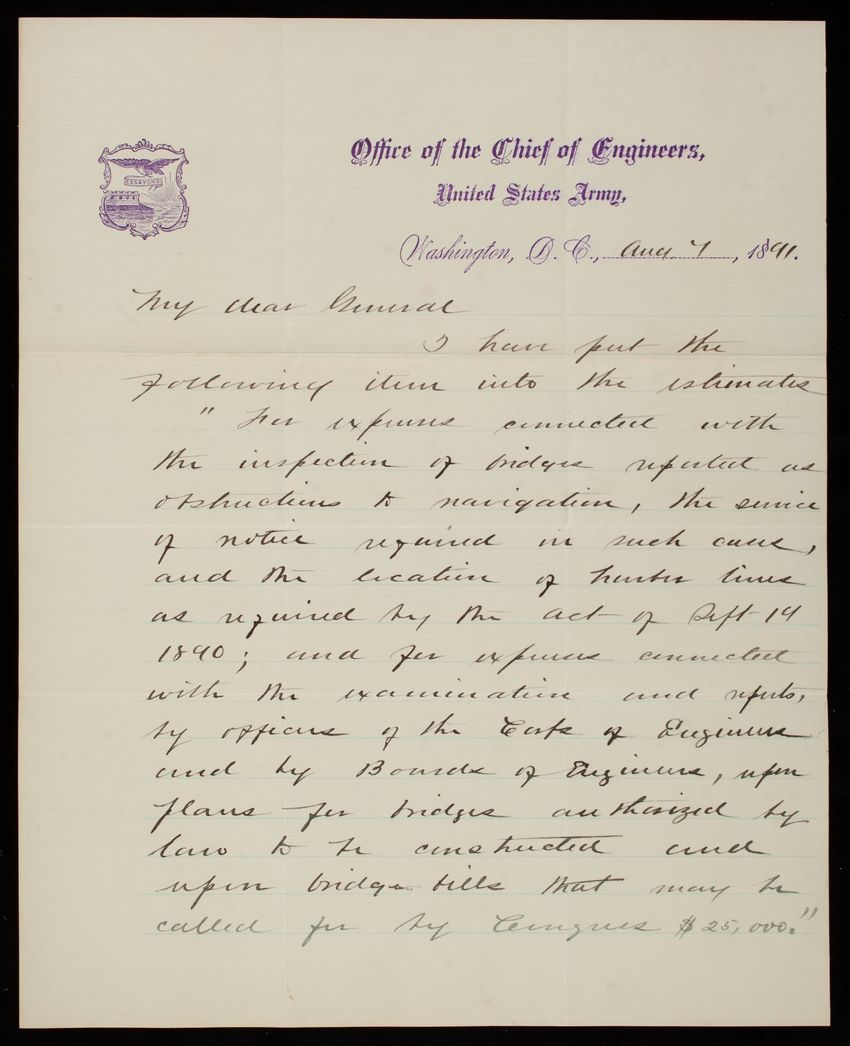 Office of the Chief of Engineers,
United States Army,
ESSAYONS
Washington, D. C., Aug 7, 1891.
My dear General
I have put the
following item into the estimates
" For expenses connected with
the inspection of bridges reported as
obstructions to navigation, the service
of notice required in such cases,
and the location of harbor lines
as required by the act of Sept 19
1890; and for expenses connected
with the examination and reports,
by officers of the Corps of Engineers
and by Boards of Engineers, upon
plans for bridges authorized by
law to be constructed and
upon bridge bills that may be
called for by Congress $25,000."